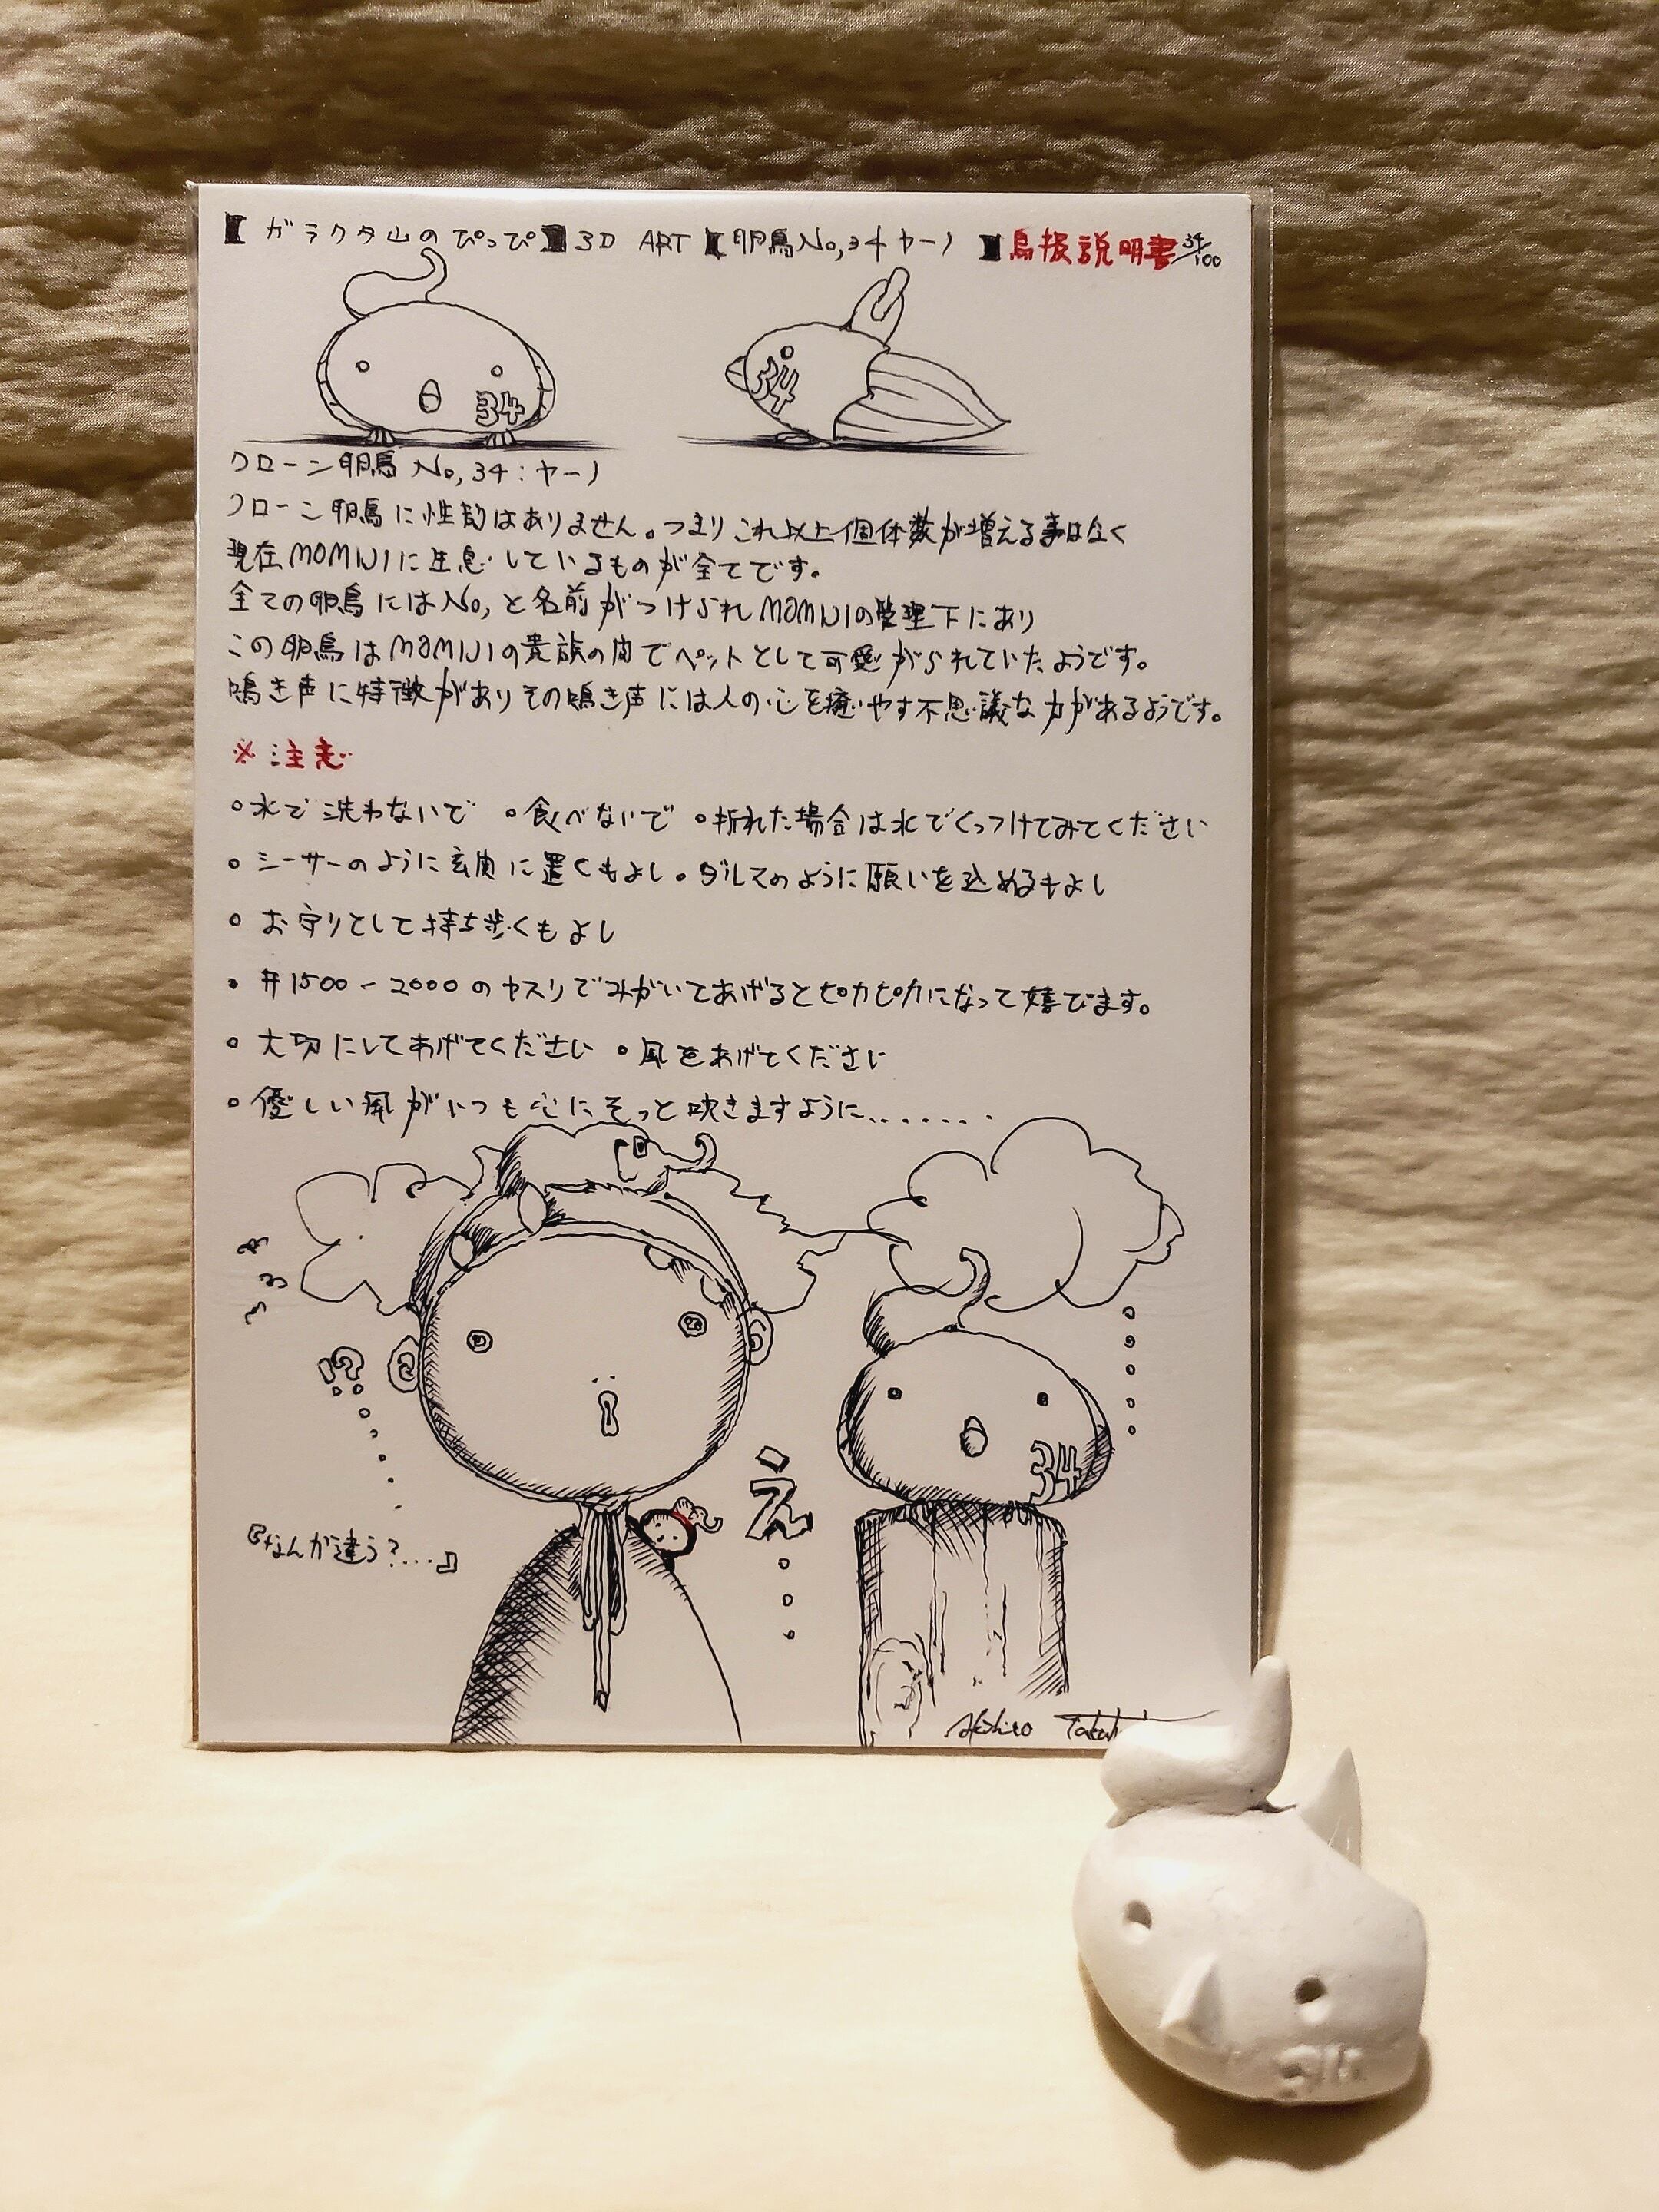 【ガラクタ山のぴっぴ】3D ART【卵鳥No,34ヤーノ】鳥扱説明書34/100
34
34
クローン卵鳥 No,34:ヤーノ
クローン卵鳥に性別はありません。つまりこれ以上個体数が増える事はなく
現在MOMIJIに生息しているものが全てです。
全ての卵鳥にはNo,と名前がつけられMOMIJIの管理下にあり
この卵鳥はMOMIJIの貴族の間でペットとして可愛がられていたようです。
鳴き声に特徴がありその鳴き声には人の心を癒やす不思議な力があるようです。
※注意
○水で洗わないで ○食べないで ○折れた場合は水でくっつけてみてください
○シーサーのように玄関に置くもよし。ダルマのように願いを込めるもよし
○お守りとして持ち歩くもよし
○#1500-2000のヤスリでみがいてあげるとピカピカになって嬉びます。
○大切にしてあげてください ○風をあげてください
○優しい風がいつも心にそっと吹きますように.......
!?
え
34
『なんか違う?...』
Akihiro
34